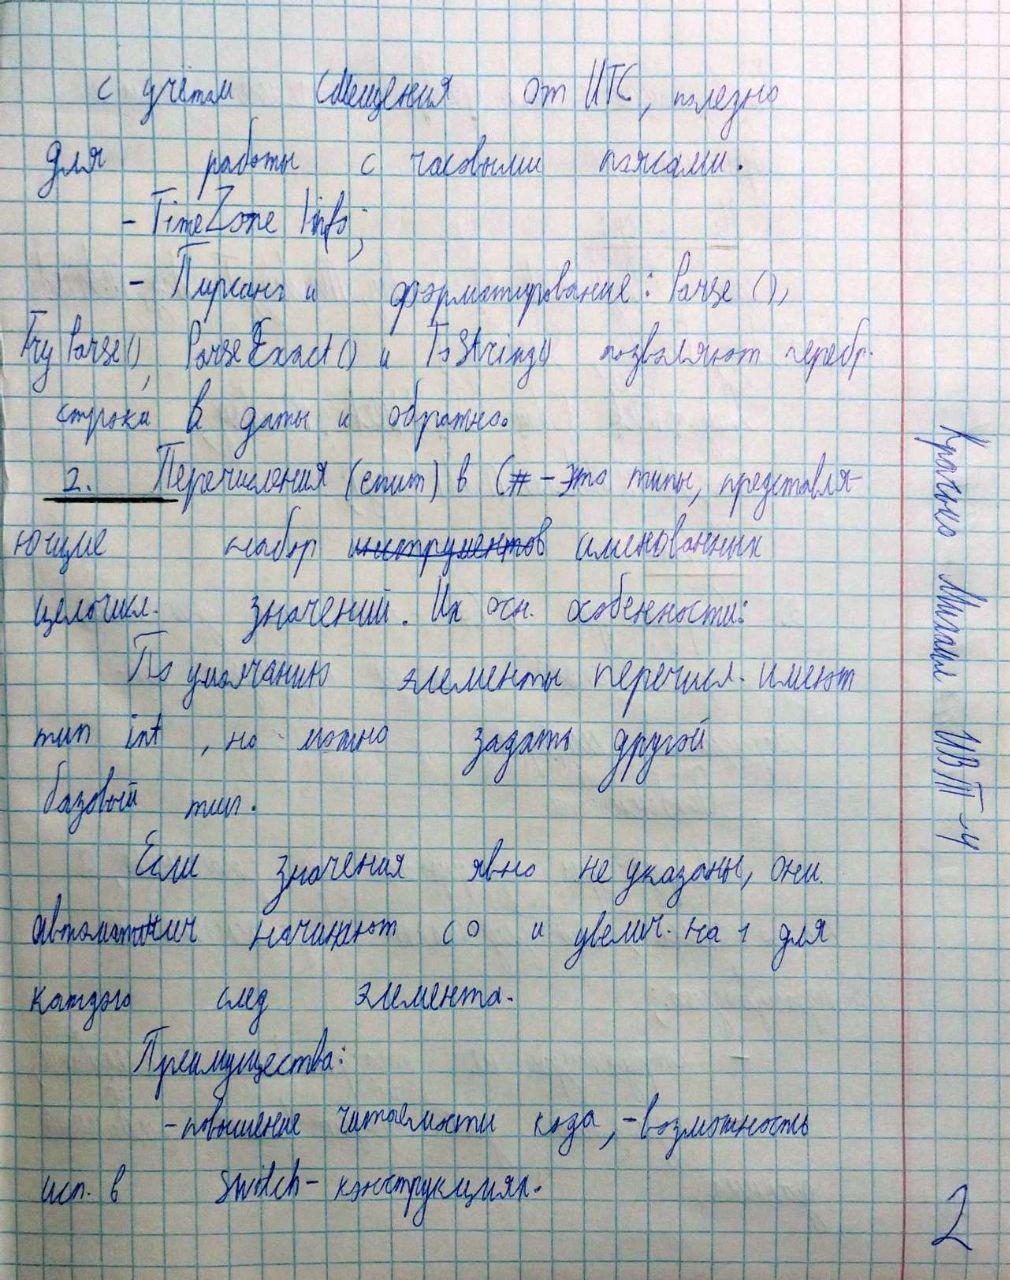 с учётом смещения от UTC, полезно
для работы с часовыми поясами.
- TimeZone Info;
- Парсинг и форматирование: Parse (),
TryParse(), ParseExact() и ToString() позволяют перебр.
строки в даты и обратно.
2. Перечисления (enum) в C# - это типы, представля-
ющие набор инструментов именованных
целочисл. значений. Их осн. особенности:
По умолчанию элементы перечисл. имеют
тип int, но можно задать другой
базовый тип.
Если значения явно не указаны, они
автоматич начинают с 0 и увелич. на 1 для
каждого след элемента.
Преимущества:
- повышение читаемости кода, - возможность
исп. в switch - конструкциях.
ИВТ-4
2